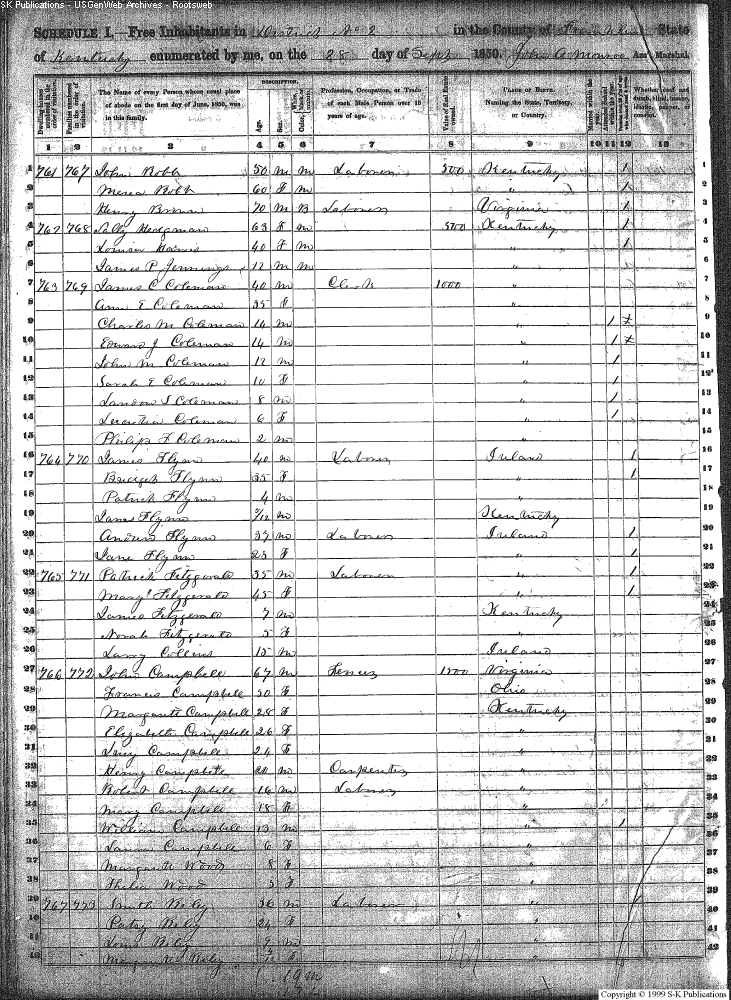 SK Publications - USGenWeb Archives - Rootsweb
SCHEDULE I.—Free Inhabitants in District No 2 in the County of Franklin State
of Kentucky enumerated by me, on the 28 day of Sept 1850. John A Monroe Ass't Marshal.
DESCRIPTION.
Dwelling-houses numbered in the order of visitation. Families numbered in the order of visitation. The Name of every Person whose usual place of abode on the first day of June, 1850, was in this family. Age. Sex. Color, Profession, Occupation, or Trade of each Male Person over 15 years of age. Value of Real Estate owned. PLACE OF BIRTH. Naming the State, Territory, or Country. Married within the year. Attended School within the year. Whether deaf and dumb, blind, insane, idiotic, pauper, or convict.
1 2 3 4 5 6 7 8 9 10 11 12 13
1 761 767 John Robb 50 M M Laborer 500 Kentucky / 1
2 Robb 60 F M " / 2
3 Henry Brown 70 M B Laborer Virginia / 3
4 762 768 Hedgman 63 F M 500 Kentucky / 4
5 Louisa Harris 40 F M " / 5
6 James P Jennings 12 M M " 6
7 763 769 James C Coleman 40 M Clerk 1000 " 7
8 Ann E Coleman 35 F " 8
9 Charles M Coleman 16 M " 1 9
10 Edward J Coleman 14 M " 1 10
11 John M Coleman 12 M " 1 11
12 Sarah E Coleman 10 F " 1 12
13 Landon S Coleman 8 M " 1 13
14 Lucretia Coleman 6 F " 1 14
15 Philip F Coleman 2 M " 15
16 764 770 James Flynn 40 M Laborer Ireland / 16
17 Bridget Flynn 35 F " / 17
18 Patrick Flynn 4 M " 18
19 James Flynn /12 M Kentucky 19
20 Flynn 37 M Laborer Ireland / 20
21 Jane Flynn 23 F " / 21
22 765 771 Patrick Fitzgerald 35 M Laborer " / 22
23 Mary Fitzgerald 45 F " / 23
24 James Fitzgerald 7 M Kentucky 24
25 Norah Fitzgerald 5 F " 25
26 Larry Collins 15 M Ireland 26
27 766 772 John Campbell 67 M 1500 Virginia 27
28 Francis Campbell 50 F Ohio 28
29 Margarett Campbell 28 F Kentucky 29
30 Elizabeth Campbell 26 F " 30
31 Lucy Campbell 24 F " 31
32 Henry Campbell 20 M Carpenter " 32
33 Robert Campbell 16 M Laborer " 33
34 Mary Campbell 18 F " 34
35 William Campbell 13 M " 1 35
36 Campbell 6 F " 36
37 Margarett Wood 8 F " 37
38 Wood 5 F " 38
39 767 773 Smith Riley 36 M Laborer " 39
40 Patsy Riley 24 F " 40
41 Riley M " 41
42 Riley " 42
Copyright © 1999 S-K Publications